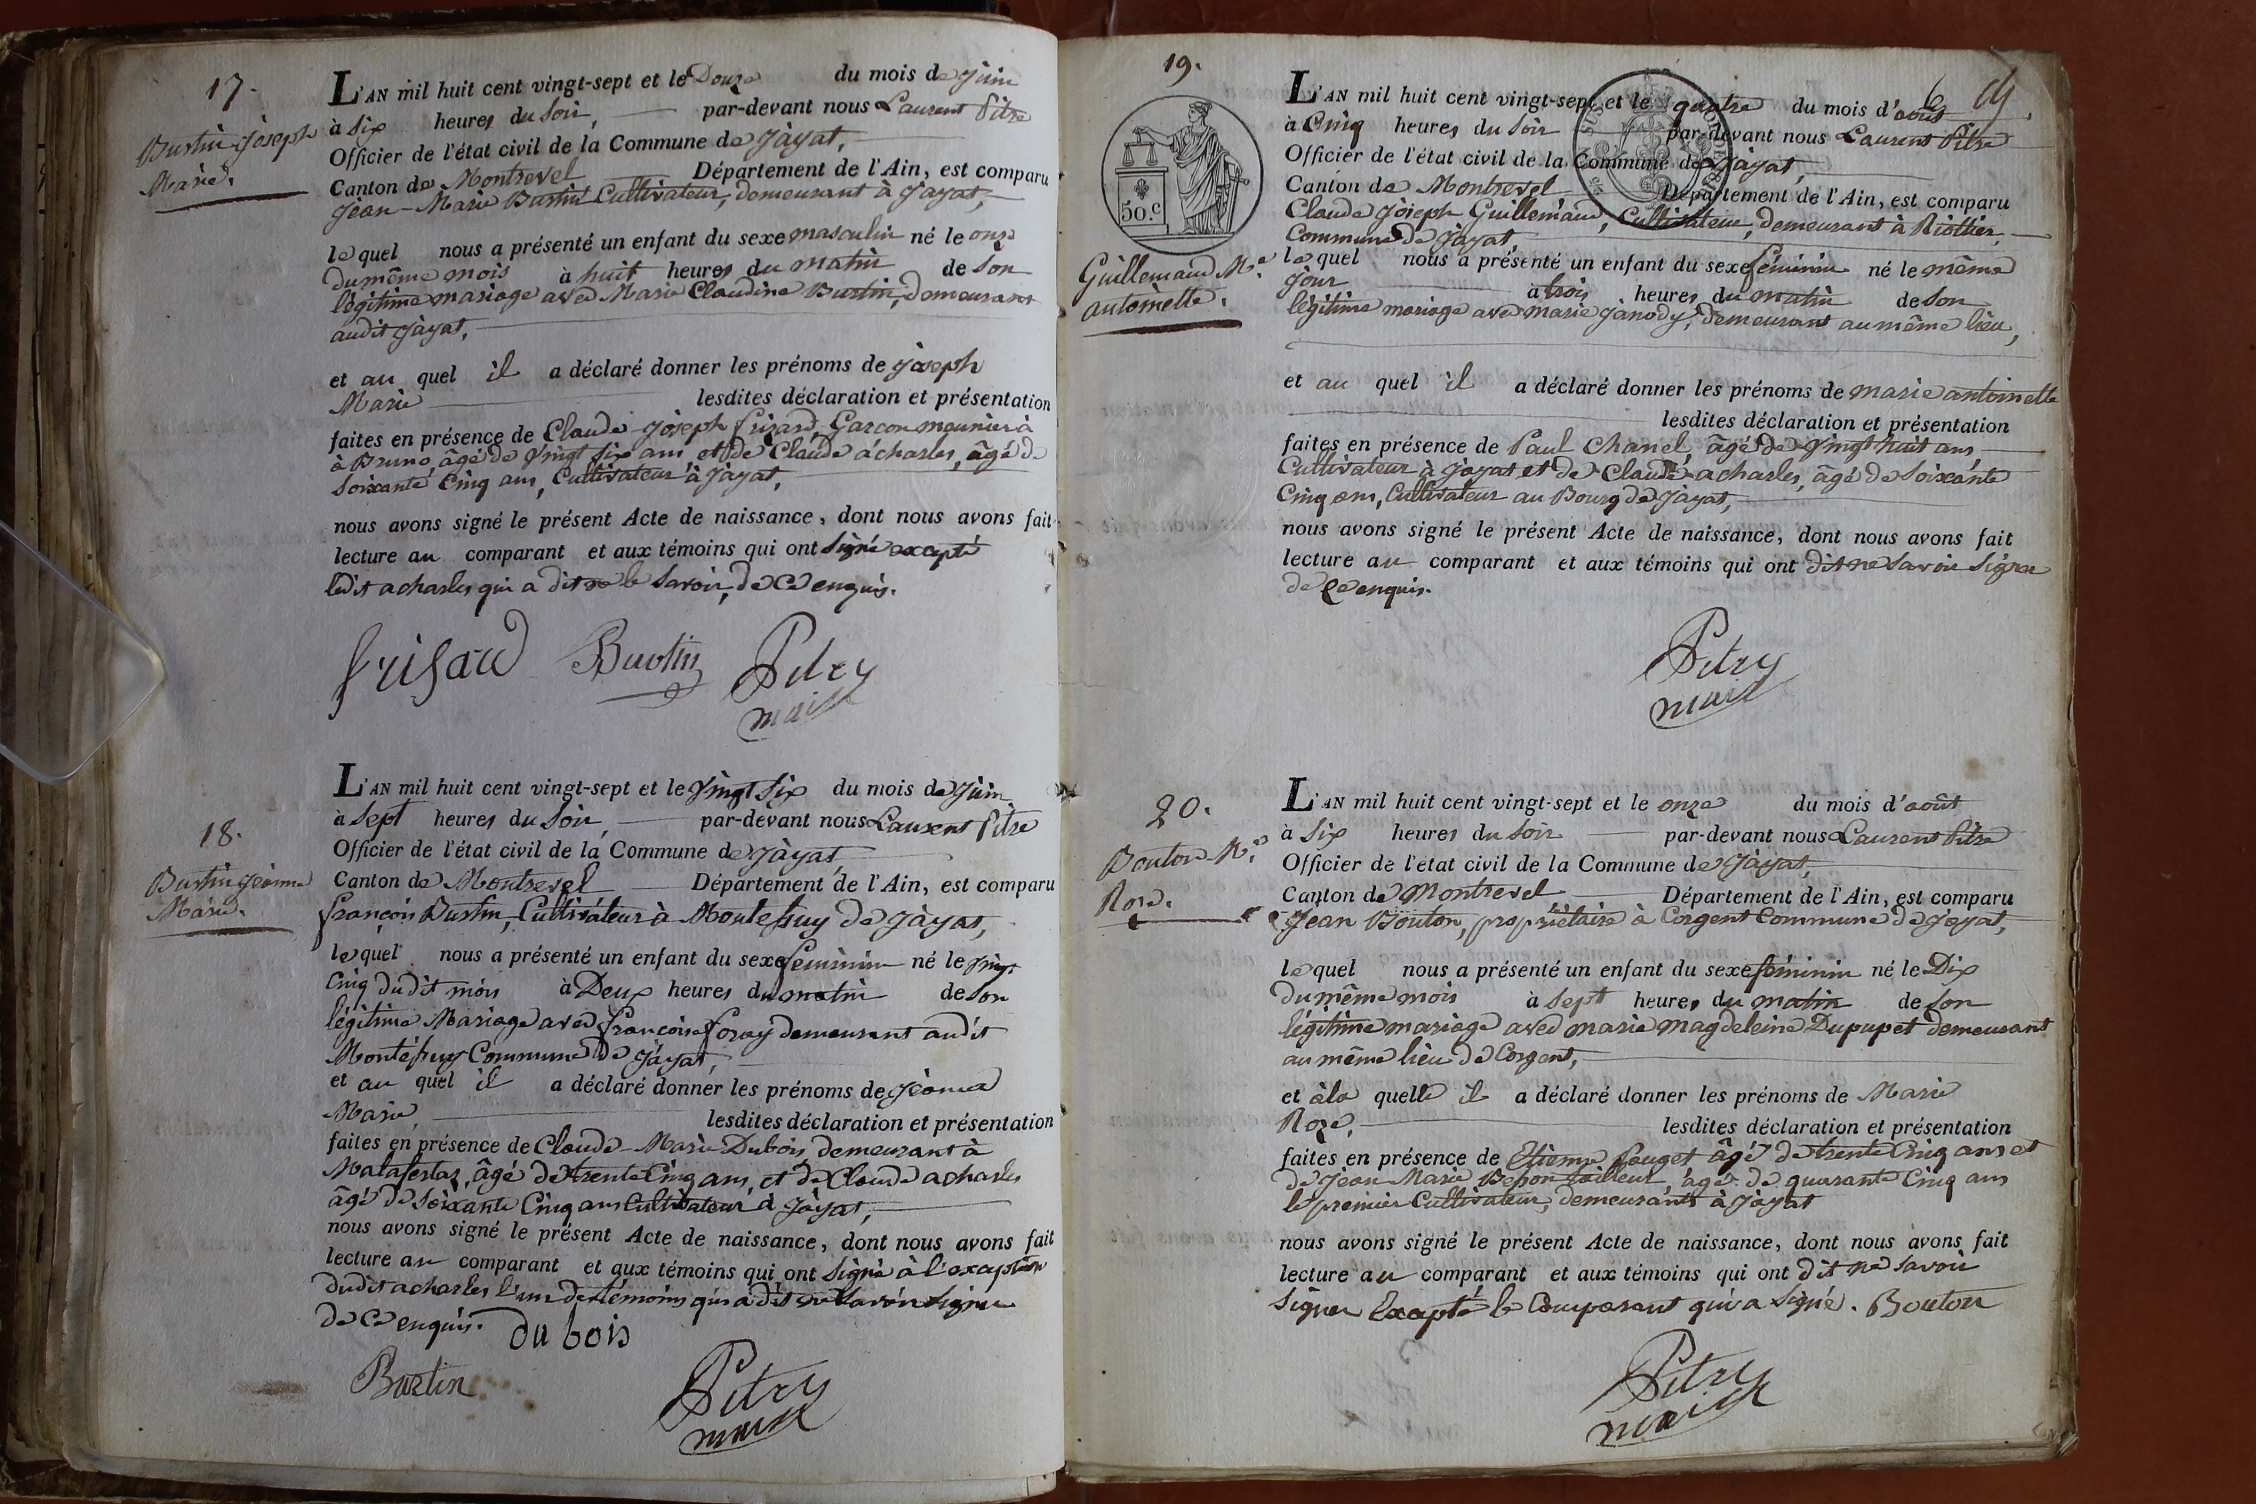 17.
Burtin Joseph
Marie.
L'AN mil huit cent vingt-sept et le Douze du mois de Juin
à Six heures du Soir, par-devant nous Laurent Pitre
Officier de l'état civil de la Commune de Jàyat,
Canton de Montrevel Département de l'Ain, est comparu
Jean-Marie Burtin Cultivateur, demeurant à Jayat,
lequel nous a présenté un enfant du sexe masculin né le onze
du même mois à huit heures du matin de Son
légitime mariage avec Marie Claudine Burtin, demeurant
audit Jàyat,
et au quel il a déclaré donner les prénoms de Joseph
Marie lesdites déclaration et présentation
faites en présence de Claude Joseph frisard, Garcon meunier à
à Bruno, âgé de Vingt Six ans et de Claude acharles, âgé de
Soixante Cinq ans, Cultivateur à Jàyat,
nous avons signé le présent Acte de naissance, dont nous avons fait
lecture au comparant et aux témoins qui ont Signé excepté
ledit acharles qui a dit ne le Savoir, de Ce enquis.
frisard Burtin Pitre
maire
18.
Burtin Jeanne
Marie.
L'AN mil huit cent vingt-sept et le Vingt Six du mois de Juin
à Sept heures du Soir, par-devant nous Laurent Pitre
Officier de l'état civil de la Commune de Jàyat,
Canton de Montrevel Département de l'Ain, est comparu
françois Burtin, Cultivateur à Montefuy de Jàyat,
lequel nous a présenté un enfant du sexe feminin né le Vingt
Cinq dudit mois à Deux heures du matin de Son
légitime Mariage avec françoise foray demeurant audit
Montéfuy Commune de Jàyat,
et au quel il a déclaré donner les prénoms de Jeanne
Marie, lesdites déclaration et présentation
faites en présence de Claude-Marie Dubois demeurant à
Malafertaz, âgé de trente Cinq ans, et de Claude acharles
âgé de Soixante Cinq ans Cultivateur à Jàyat,
nous avons signé le présent Acte de naissance, dont nous avons fait
lecture au comparant et aux témoins qui ont Signé à l'exception
dudit acharles l'un des témoins qui a dit ne Savoir Signer
de Ce enquis. du bois
Burtin Pitre
maire
19.
50.c
Guillemaud Mie
antoinette.
L'AN mil huit cent vingt-sept et le quatre du mois d'août
à Cinq heures du Soir par-devant nous Laurent Pitre
Officier de l'état civil de la Commune de Jàyat,
Canton de Montrevel Département de l'Ain, est comparu
Claude Joseph Guillemaud, Cultivateur, demeurant à Riottier,
Commune de Jàyat
lequel nous a présenté un enfant du sexe féminin né le même
jour à trois heures du matin de Son
légitime mariage avec marie Janody, demeurant au même lieu,
et au quel il a déclaré donner les prénoms de marie antoinette
lesdites déclaration et présentation
faites en présence de Paul Chanel, âgé de Vingt huit ans,
Cultivateur à Jayat et de Claude acharles, âgé de Soixante
Cinq ans, Cultivateur au Bourg de Jàyat,
nous avons signé le présent Acte de naissance, dont nous avons fait
lecture au comparant et aux témoins qui ont dit ne Savoir Signer
de Ce enquis.
Pitre
maire
20.
Bouton Mie
Roze.
L'AN mil huit cent vingt-sept et le onze du mois d'août
à Six heures du Soir par-devant nous Laurent Pitre
Officier de l'état civil de la Commune de Jàyat,
Canton de Montrevel Département de l'Ain, est comparu
Jean Bouton, propriétaire à Corgent Commune de Jayat,
lequel nous a présenté un enfant du sexe féminin né le Dix
du même mois à Sept heures du matin de Son
légitime mariage avec marie magdeleine Dupupet demeurant
au même lieu de Corgent,
et à la quelle il a déclaré donner les prénoms de Marie
Roze, lesdites déclaration et présentation
faites en présence de Etienne Pouget âgé de trente Cinq ans et
de Jean Marie tailleur, âgé de quarante Cinq ans
le premier Cultivateur, demeurants à Jàyat
nous avons signé le présent Acte de naissance, dont nous avons fait
lecture au comparant et aux témoins qui ont dit ne Savoir
Signer Excepté le Comparant qui a Signé. Bouton
Pitre
maire